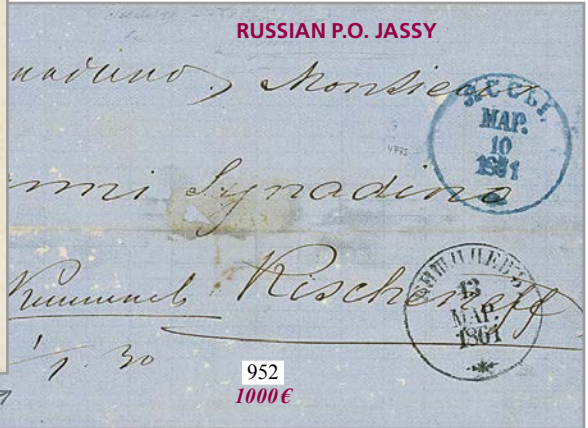 RUSSIAN P.O. JASSY
Monsieur
ЯССЫ.
МАР.
10
1861
4775
Synadino
Kischeneff
КИШИНЕВЪ
13
МАР.
1861
1. 30
952
1000 €